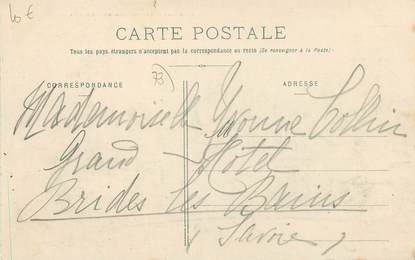 10 €
CARTE POSTALE
Tous les pays étrangers n'acceptent pas la correspondance au recto (Se renseigner à la Poste)
73)
CORRESPONDANCE ADRESSE
Mademoiselle Yvonne Collin
Grand Hotel
Brides les Bains
Savoie